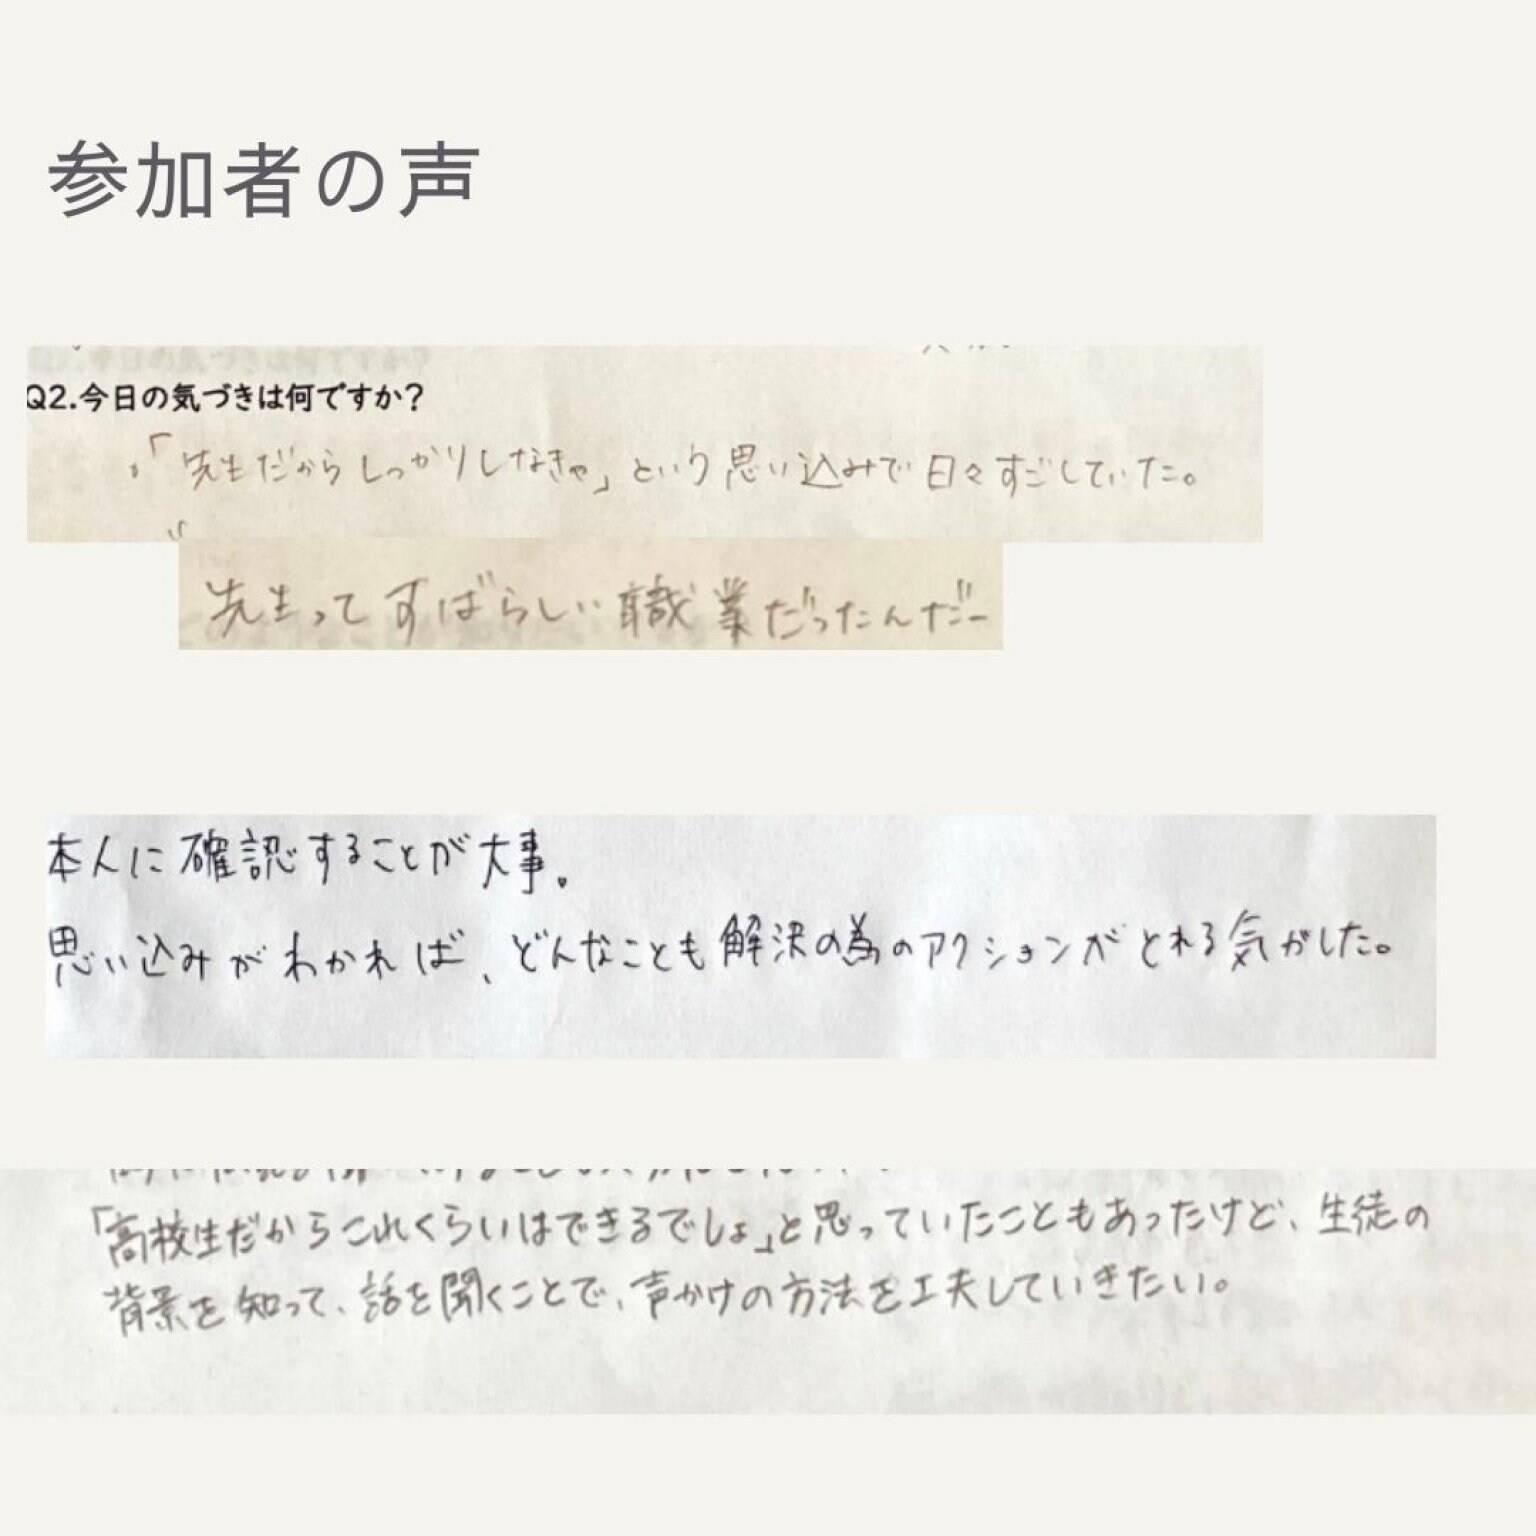 参加者の声
Q2.今日の気づきは何ですか?
「先生だからしっかりしなきゃ」という思い込みで日々すごしていた。
先生ってすばらしい職業だったんだー
本人に確認することが大事。
思い込みがわかれば、どんなことも解決の為のアクションがとれる気がした。
「高校生だからこれくらいはできるでしょ」と思っていたこともあったけど、生徒の
背景を知って、話を聞くことで、声かけの方法を工夫していきたい。